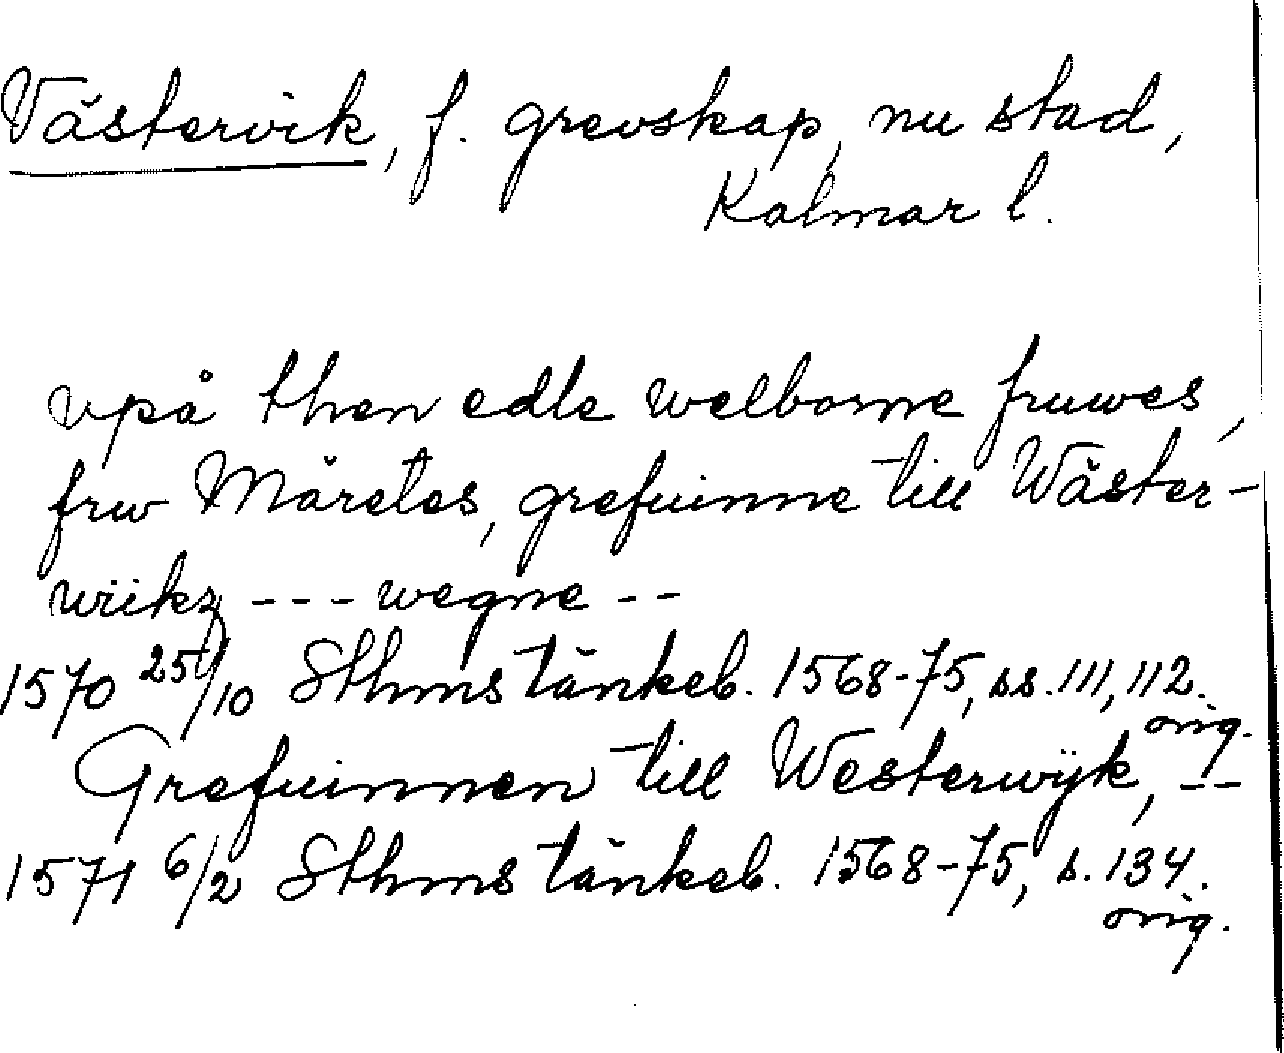 Västervik, f. grevskap, nu stad,
Kalmar l.
vpå then edle welborne fruwes,
frw Märetes, grefuinne till Wäster-
wiikz --- wegne --
1570 25/10 Sthms tänkeb. 1568-75, ss. 111, 112.
orig.
Grefuinnen till Westerwÿk, --
1571 6/2 Sthms tänkeb. 1568-75, s. 134.
orig.